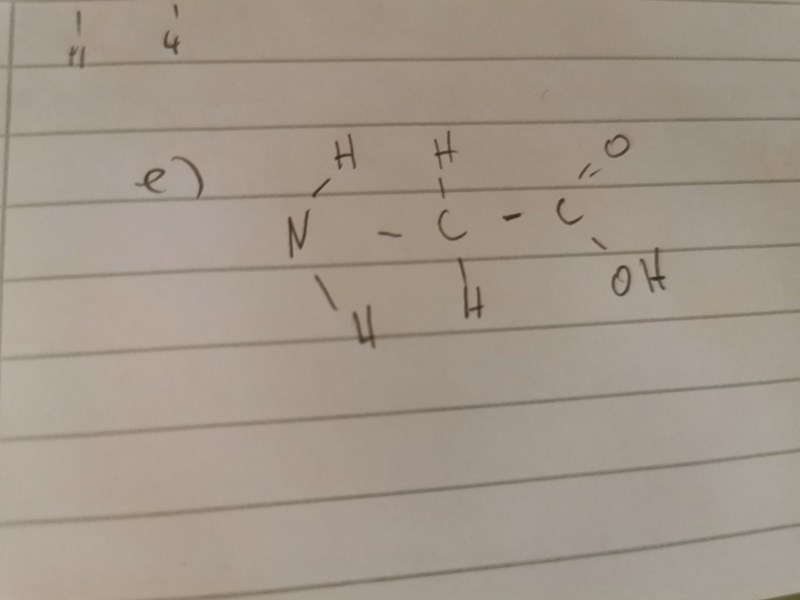 H 4
H H O
e) N - C - C
OH
H H